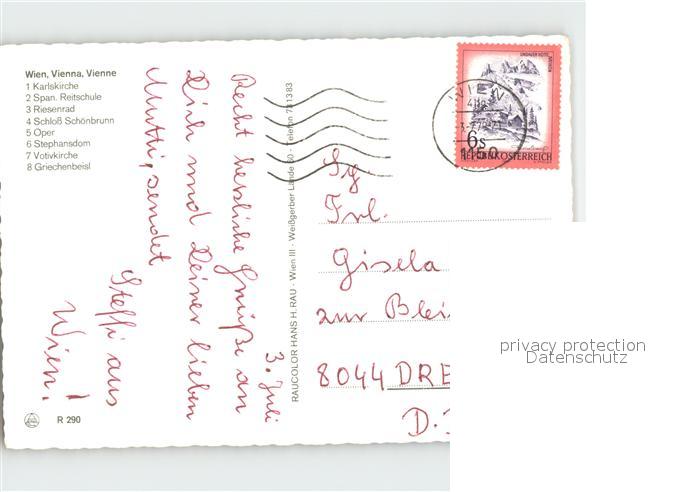 Wien, Vienna, Vienne
1 Karlskirche
2 Span. Reitschule
3 Riesenrad
4 Schloß Schönbrunn
5 Oper
6 Stephansdom
7 Votivkirche
8 Griechenbeisl
R 290
3. Juli
Recht herzliche Grüße an
Dich und Deiner lieben
Mutti, sendet
Steffi aus
Wien!
RAUCOLOR HANS H. RAU - Wien III - Weißgerber Lände 50 - Telefon 731383
LINDAUER HÜTTE
6s
REPUBLIK ÖSTERREICH
WIEN
1150
Sg.
Frl.
Gisela
zur Blei
8044 DRE
D.
privacy protection
Datenschutz